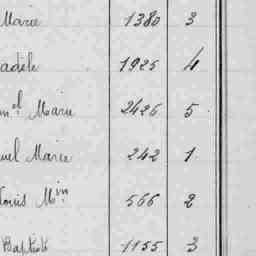 Marie 1380 3
adèle 1925 4
el Marie 2426 5
uel Marie 242 1
Louis Min 566 2
Baptiste 1155 3